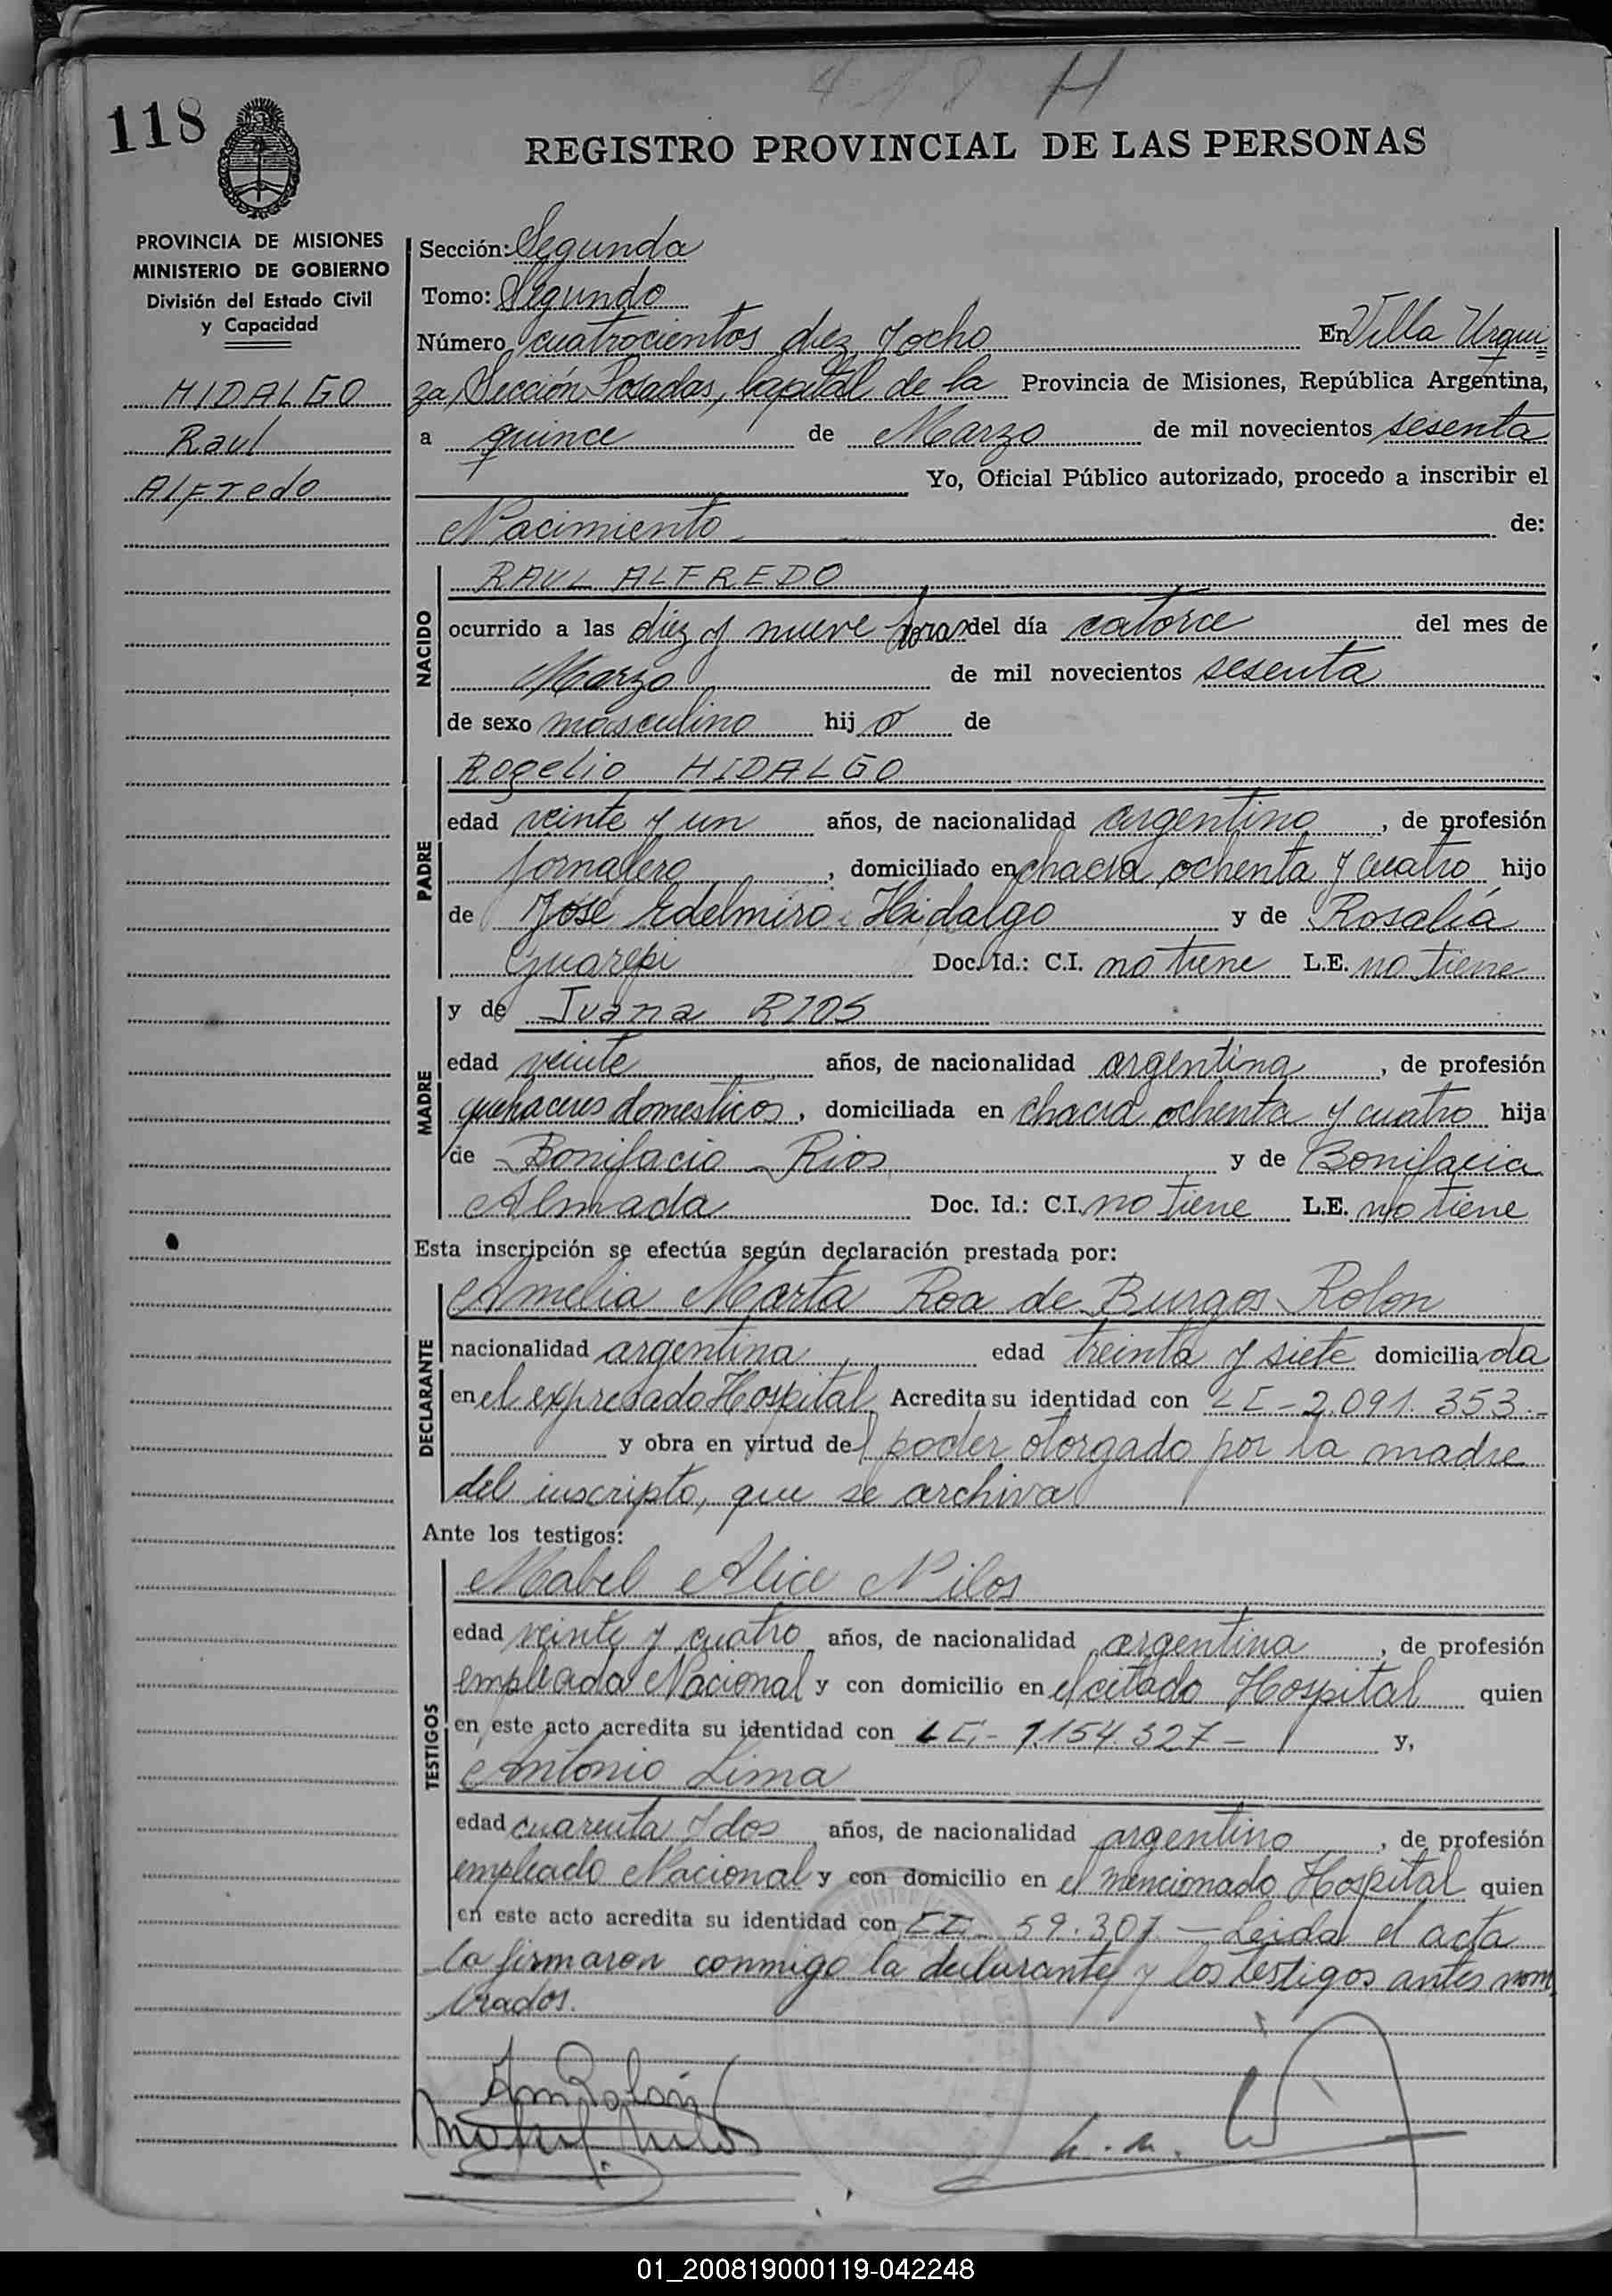 118
418 H
REGISTRO PROVINCIAL DE LAS PERSONAS
PROVINCIA DE MISIONES
MINISTERIO DE GOBIERNO
División del Estado Civil
y Capacidad
HIDALGO
Raul
Alfredo
Sección: Segunda
Tomo: Segundo
Número cuatrocientos diez y ocho En Villa Urqui
za, Sección Posadas, Capital de la Provincia de Misiones, República Argentina,
a quince de Marzo de mil novecientos sesenta
Yo, Oficial Público autorizado, procedo a inscribir el
Nacimiento de:
NACIDO
RAUL ALFREDO
ocurrido a las diez y nueve horas del día catorce del mes de
Marzo de mil novecientos sesenta
de sexo masculino hij o de
PADRE
Rogelio HIDALGO
edad veinte y un años, de nacionalidad argentino, de profesión
jornalero, domiciliado en chacra ochenta y cuatro hijo
de José Edelmiro Hidalgo y de Rosalía
Guarepi Doc. Id.: C.I. no tiene L.E. no tiene
MADRE
y de Juana RIOS
edad veinte años, de nacionalidad argentina, de profesión
quehaceres domesticos, domiciliada en chacra ochenta y cuatro hija
de Bonifacio Rios y de Bonifacia
Almada Doc. Id.: C.I. no tiene L.E. no tiene
Esta inscripción se efectúa según declaración prestada por:
DECLARANTE
Amelia Marta Roa de Burgos Rolon
nacionalidad argentina edad treinta y siete domicilia da
en el expresado Hospital Acredita su identidad con 2.091.353.-
y obra en virtud del poder otorgado por la madre
del inscripto, que se archiva
Ante los testigos:
TESTIGOS
Mabel Alice Nilos
edad veinte y cuatro años, de nacionalidad argentina, de profesión
empleada Nacional y con domicilio en el citado Hospital quien
en este acto acredita su identidad con 1.154.327- y,
Antonio Lima
edad cuarenta y dos años, de nacionalidad argentino, de profesión
empleado Nacional y con domicilio en el mencionado Hospital quien
en este acto acredita su identidad con 59.307 — Leida el acta
la firmaron conmigo la declarante y los testigos antes nom
brados.
01_200819000119-042248